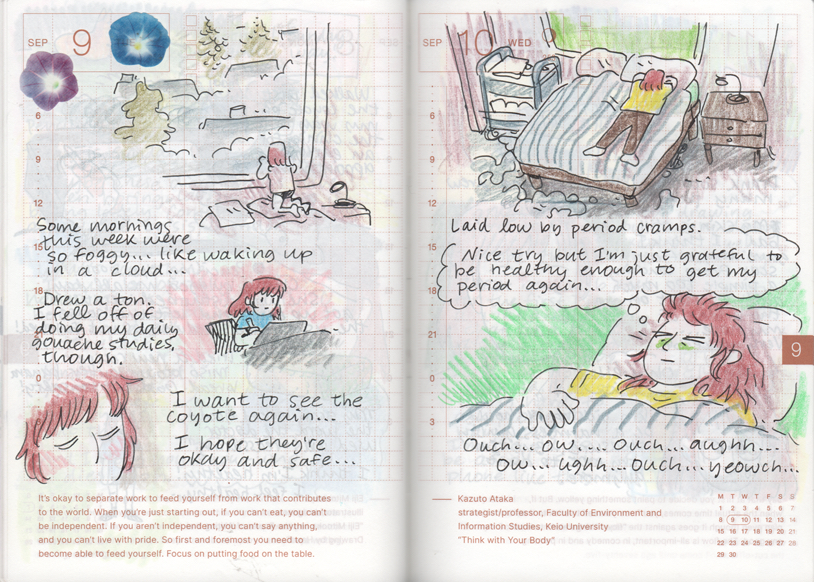 SEP 9
6
9
12
Some mornings
this week were
15
so foggy... like waking up
in a cloud...
18
Drew a ton.
I fell off of
doing my daily
gouache studies,
though.
0
I want to see the
coyote again...
I hope they're
okay and safe...
It's okay to separate work to feed yourself from work that contributes
to the world. When you're just starting out, if you can't eat, you can't
be independent. If you aren't independent, you can't say anything,
and you can't live with pride. So first and foremost you need to
become able to feed yourself. Focus on putting food on the table.
SEP 10 WED
6
9
12
Laid low by period cramps.
15
Nice try but I'm just grateful to
be healthy enough to get my
18
period again...
21
9
0
3
Ouch... ow.... Ouch... aughh...
ow... ughh... ouch... yeowch...
Kazuto Ataka
strategist/professor, Faculty of Environment and
Information Studies, Keio University
"Think with Your Body"
M T W T F S S
1 2 3 4 5 6 7
8 9 10 11 12 13 14
15 16 17 18 19 20 21
22 23 24 25 26 27 28
29 30